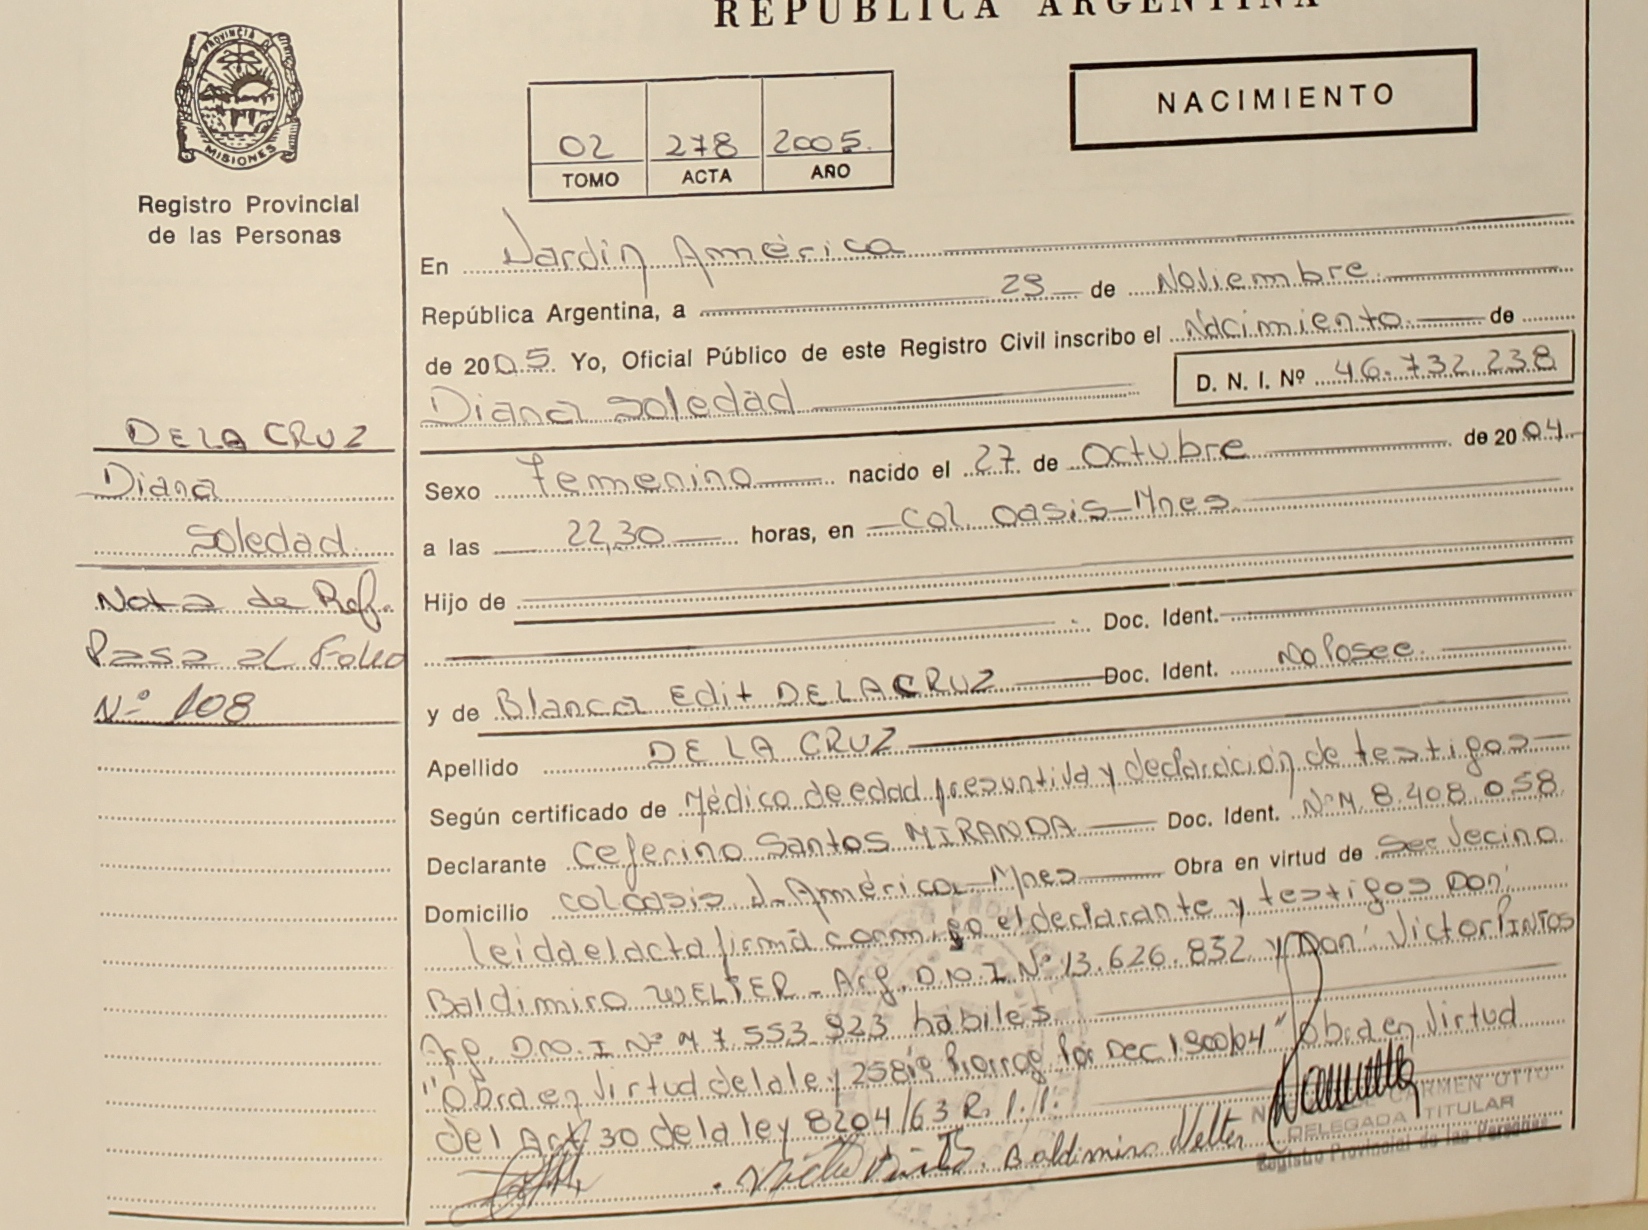 REPUBLICA ARGENTINA
PROVINCIA DE
MISIONES
Registro Provincial
de las Personas
NACIMIENTO
02 278 2005
TOMO ACTA AÑO
En Jardín América
República Argentina, a 29 de Noviembre
de 2005 Yo, Oficial Público de este Registro Civil inscribo el Nacimiento de
Diana Soledad D. N. I. Nº 46.732.238
DE LA CRUZ
Diana
Soledad
Nota de Ref.
Pasa al Folio
Nº 108
Sexo Femenino nacido el 27 de Octubre de 2004
a las 22,30 horas, en Col. Oasis-Mnes
Hijo de
Doc. Ident.
y de Blanca Edit DE LA CRUZ Doc. Ident. No Posee
Apellido DE LA CRUZ
Según certificado de Médico de edad presuntiva y declaración de testigos
Declarante Ceferino Santos MIRANDA Doc. Ident. Nº M 8.408.058
Domicilio Col oasis J. América-Mnes Obra en virtud de Ser Vecino
leida el acta firma conmigo el declarante y testigos Don:
Baldimiro WELTER - Arg. D.N.I Nº 13.626.832 y Don: Victor PINTOS
Arg. D.N.I Nº M 7.553.923 habiles
"Obra en virtud de la ley 25819 Prorrog. Por Dec 1900/04" Obra en Virtud
del Art. 30 de la ley 8204/63 R.
Baldimiro Welter
CARMEN OTTO
DELEGADA TITULAR
Registro Provincial de las Personas